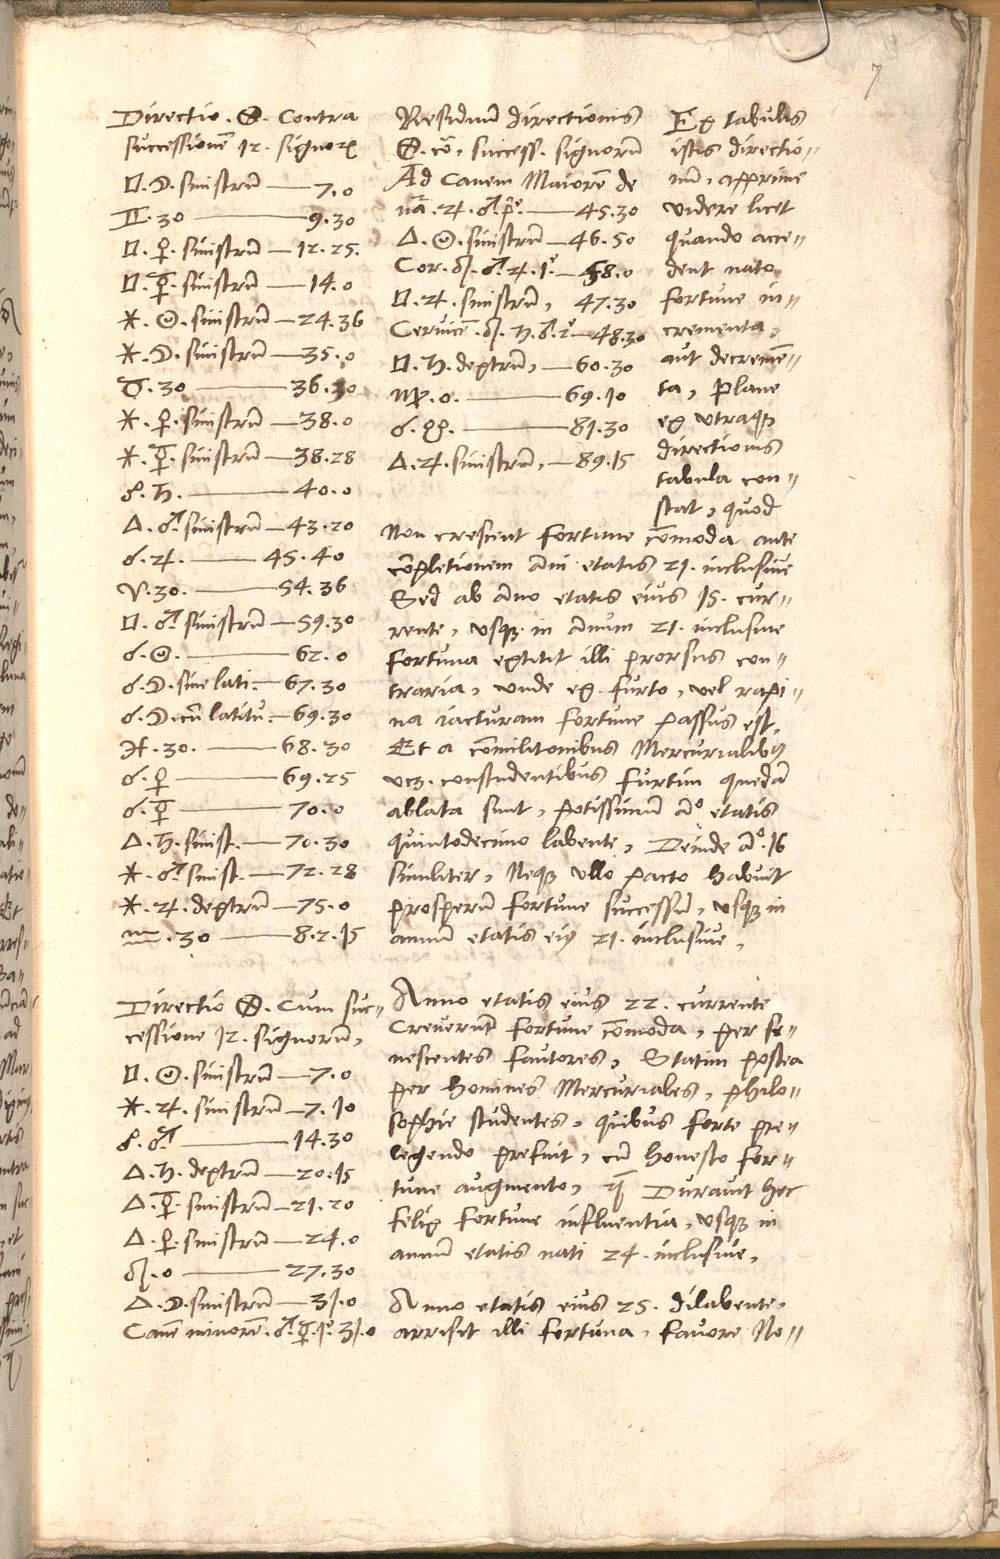 7
Directio . ⊗ . Contra
successionē 12. signorꝝ
□ . ☽ . sinistrū — 7. 0
♊ . 30 — 9. 30
□ . ♀ . sinistrū — 12. 25.
□ . ☿ . sinistrū — 14. 0
⚹ . ☉ . sinistrū — 24. 36
⚹ . ☽ . sinistrū — 35. 0
♉ . 30 — 36. 30
⚹ . ♀ . sinistrū — 38. 0
⚹ . ☿ . sinistrū — 38. 28
☍ . ♄ . — 40. 0
△ . ♂ sinistrū — 43. 20
☌ . ♃ . — 45. 40
♈ . 30. — 54. 36
□ . ♂ sinistrū — 59. 30
☌ . ☉ . — 62. 0
☌ . ☽ . sine lati. — 67. 30
☌ . ☽ . cū latitu. — 69. 30
♓ . 30. — 68. 30
☌ . ♀ — 69. 25
☌ . ☿ — 70. 0
△ . ♄ . sinist. — 70. 30
⚹ . ♂ sinist. — 72. 28
⚹ . ♃ . dextrū — 75. 0
♒ . 30 — 8. 2. 15
Directio ⊗ . Cum suc=
cessione 12. signorū,
□ . ☉ . sinistrū — 7. 0
⚹ . ♃ . sinistrū — 7. 10
☍ . ♂ — 14. 30
△ . ♄ . dextrū — 20. 15
△ . ☿ . sinistrū — 21. 20
△ . ♀ . sinistrū — 24. 0
♌ . 0 — 27. 30
△ . ☽ . sinistrū — 31. 0
Canē minorē . ♂ . ☿ . 1ͤ. 31. 0
Residuum directionis
⊗ . cō, success. signorū
Ad Canem Maiorē de
nā . ♃ . ♂ . p̄ͤ. — 45. 30
△ . ☉ . sinistrū — 46. 50
Cor . ♌ . ♂ . ♃ . 1ͤ — 58. 0
□ . ♃ . sinistrū, 47. 30
Cervicē . ♌ . ♄ . ♂ . 2ͤ — 48. 30
□ . ♄ . dextrū, — 60. 30
♍ . 0. — 69. 10
☌ . ☊ . — 81. 30
△ . ♃ . sinistrū, — 89. 15
Ex tabulis
istis directio=
nū, apprime
videre licet
quando acce=
dent nato
fortune in=
crementa,
aut decremē=
ta, Plane
ex vtraqꝫ
directionis
tabula con=
stat, quod
Non crescent fortune cōmoda ante
cōpletionem āni etatis 21. inclusiue
Sed ab āno etatis eius 15. cur=
rente, vsqꝫ in annum 21. inclusiue
fortuna extitit illi prorsus con=
traria, vnde ex furto, vel rapi=
na iacturam fortune passus est,
Et a cōmilitonibus Mercurialibꝰ
vcꝫ. constudentibus furtim quedā
ablata sunt, potissimū āº etatis
quintodecimo labente, Deinde āº. 16
similiter, Neqꝫ vllo pacto habuit
prosperū fortune successū, vsqꝫ in
annum etatis eiꝰ 21. inclusiue,
Anno etatis eius 22. currente
Creuerūt fortune cōmoda, per se=
nescentes fautores, Statim postea
per homines Mercuriales, philo=
sophie studentes, quibus forte pre=
legendo prefuit, cū honesto for=
tune augmento, q̄ Durauit hec
felix fortune influentia, vsqꝫ in
annū etatis nati 24. inclusiue,
Anno etatis eius 25. dilabente,
arrisit illi fortuna, fauore No=